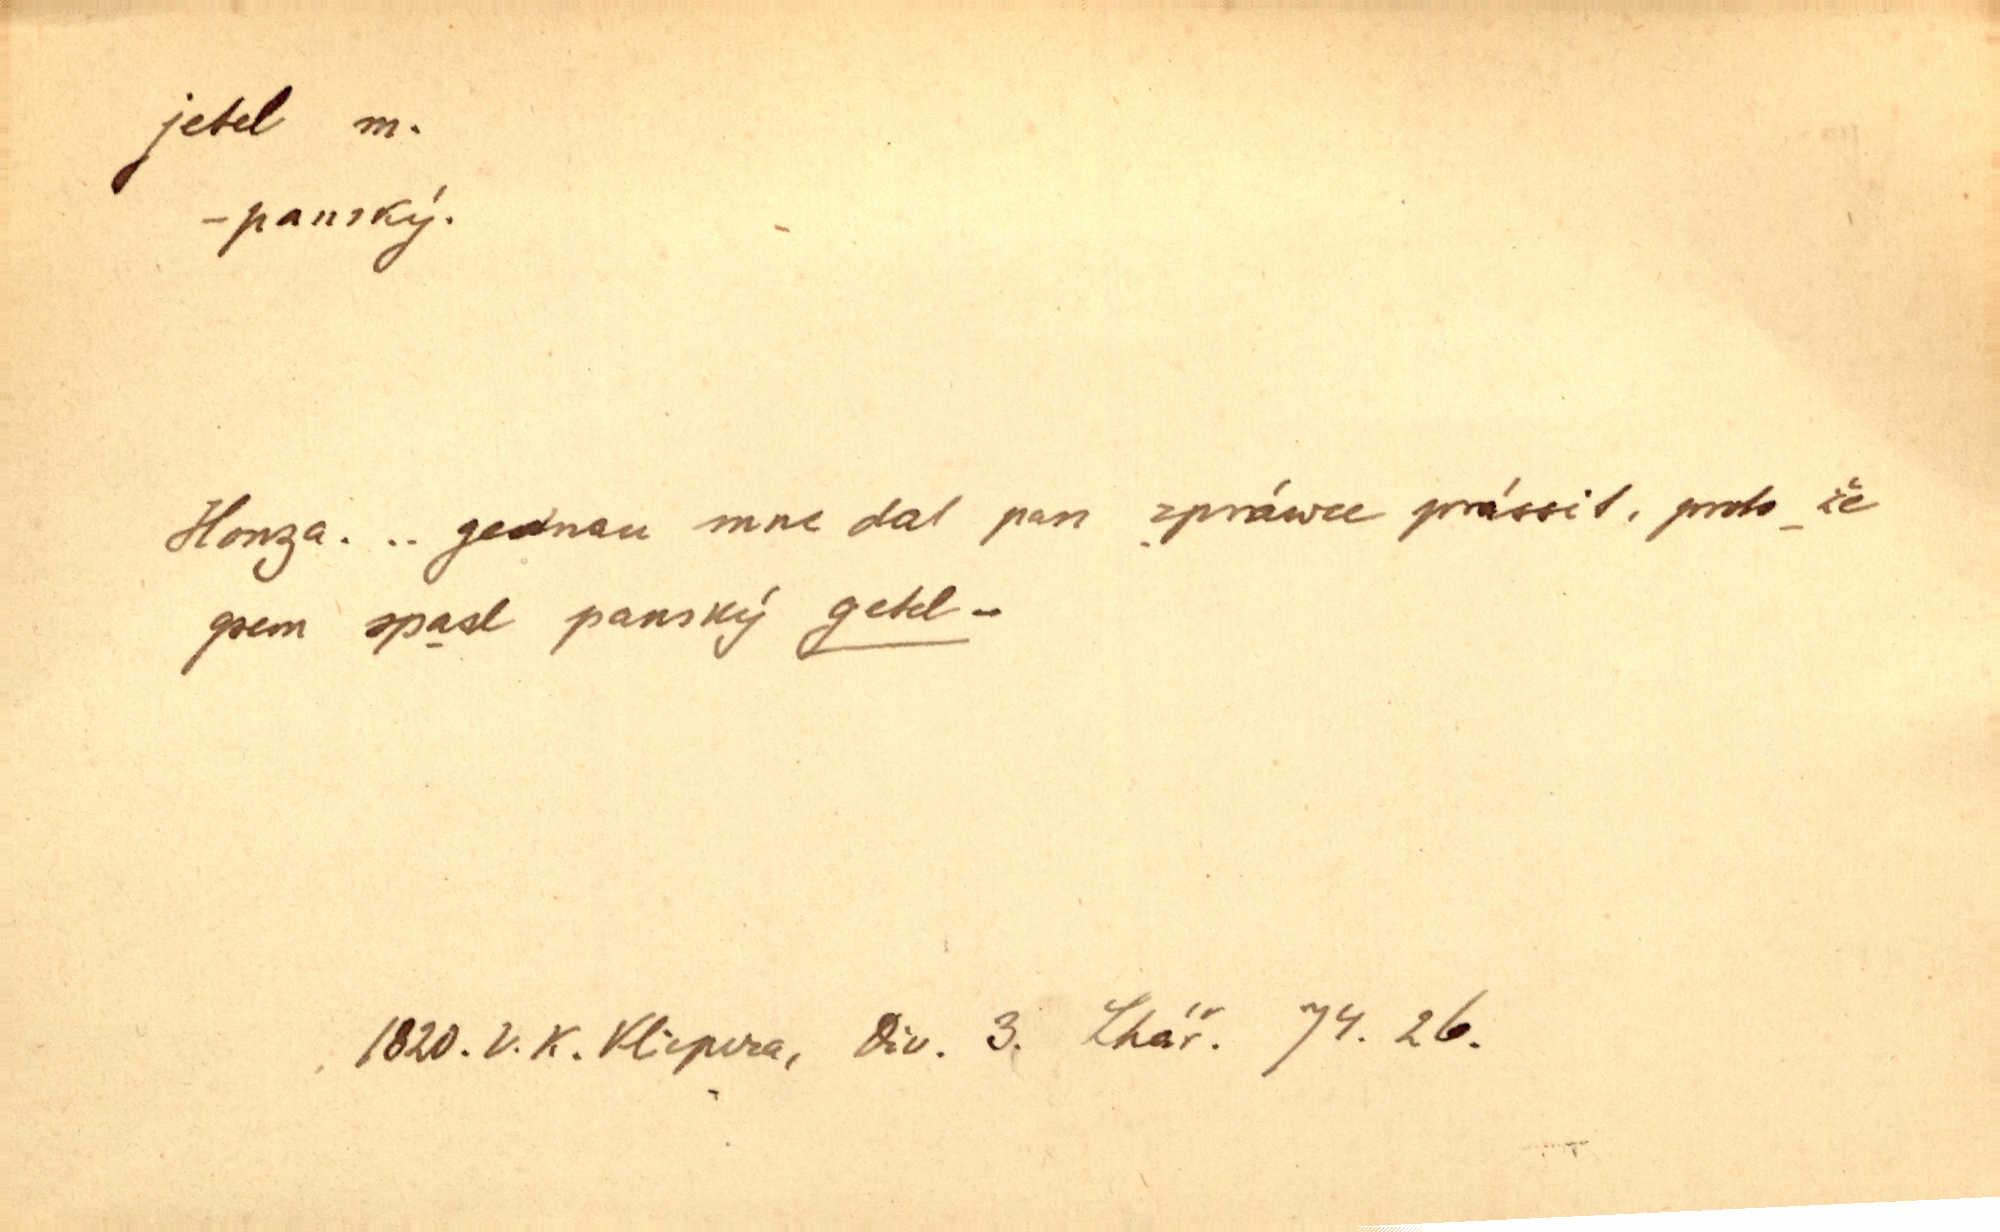 jetel m.
- panský.
Honza. .. gednau mne dal pan spráwce prássit, proto_že
gsem spasl panský getel -
1820. V. K. Klicpera, Div. 3. Lhář. 74. 26.